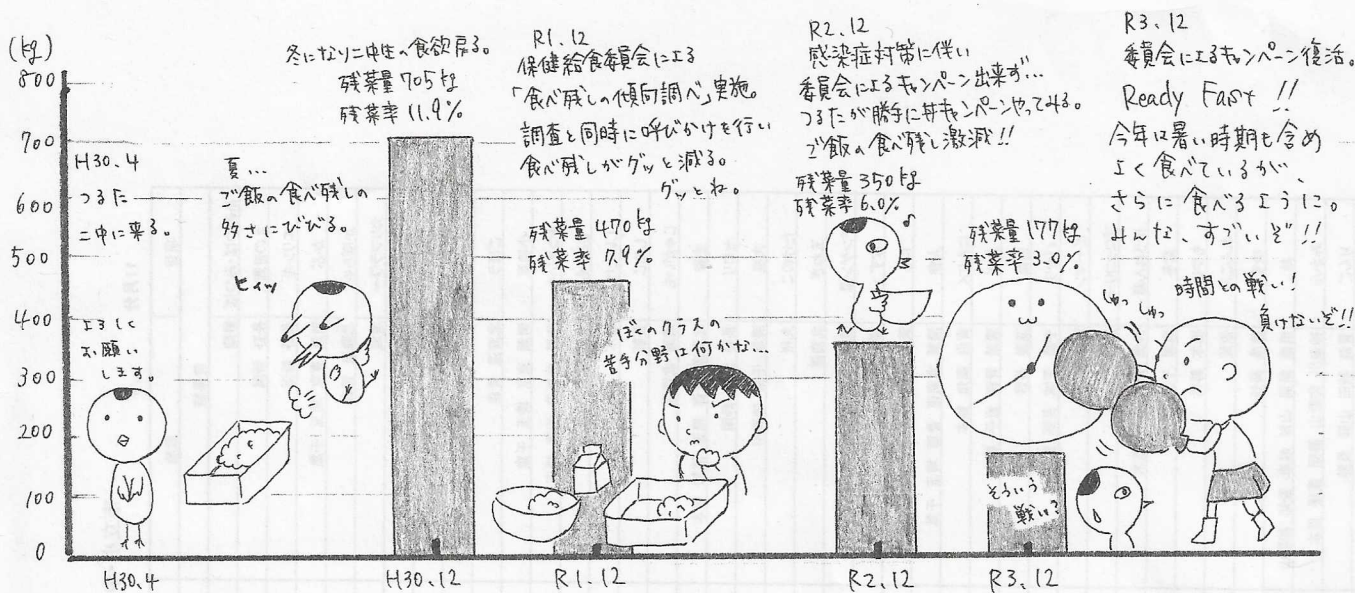 (kg)
800
700
600
500
400
300
200
100
0
H30.4
つるた
二中に来る。
よろしく
お願い
します。
夏…
ご飯の食べ残しの
多さにびびる。
ヒィッ
冬になり二中生の食欲戻る。
残菜量705kg
残菜率11.9%
R1.12
保健給食委員会による
「食べ残しの傾向調べ」実施。
調査と同時に呼びかけを行い
食べ残しがグッと減る。
グッとね。
残菜量470kg
残菜率7.9%
ぼくのクラスの
苦手分野は何かな…
R2.12
感染症対策に伴い
委員会によるキャンペーン出来ず…
つるたが勝手に丼キャンペーンやってみる。
ご飯の食べ残し激減!!
残菜量350kg
残菜率6.0%
♪
R3.12
委員会によるキャンペーン復活。
Ready Fast !!
今年は暑い時期も含め
よく食べているが、
さらに食べるように。
みんな、すごいぞ!!
残菜量177kg
残菜率3.0%
しゅっ
しゅっ
時間との戦い!
負けないぞ!!
そういう
戦い?
H30.4
H30.12
R1.12
R2.12
R3.12